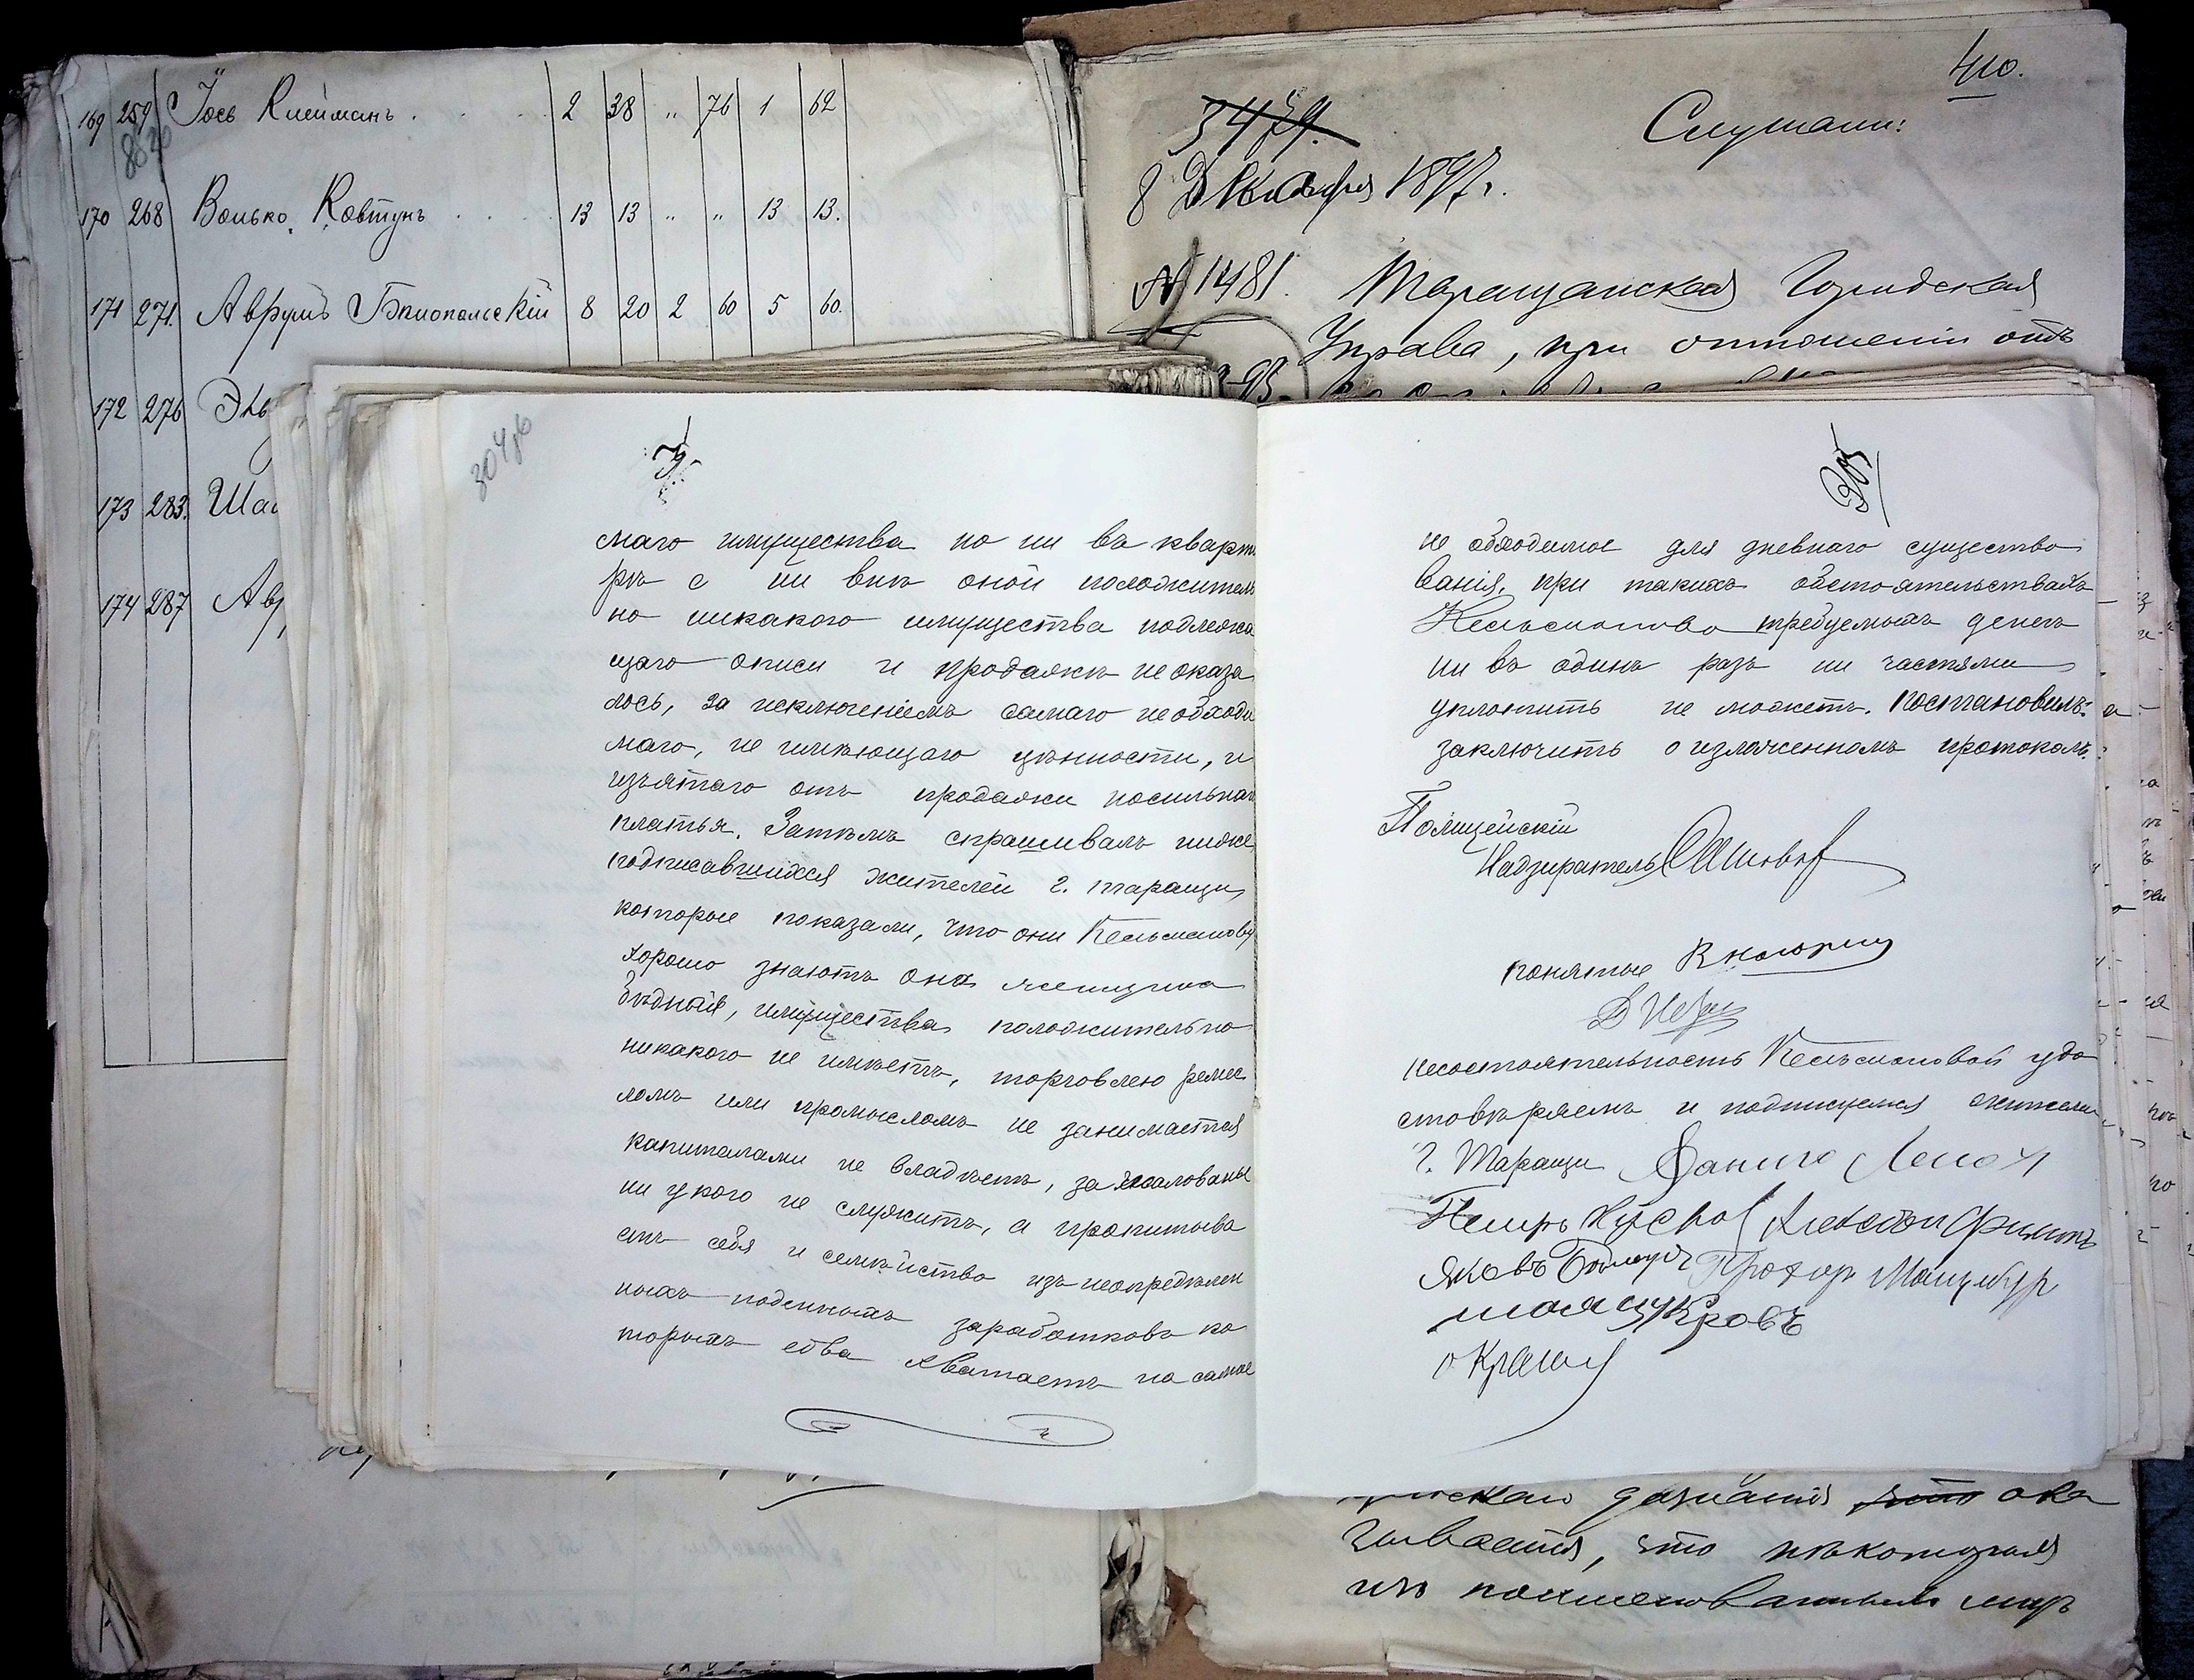 169 259 Іось Клейманъ . . . . 2 38 " 76 1 62
170 268 Волько Ковтунъ . . . . 13 13 " " 13 13.
171 271. Аврумъ Бѣлопольскій 8 20 2 60 5 60.
172 276
173 283.
174 287
410.
3479.
Слушали:
8 Декабря 1897 г.
№ 1481. Таращанская Городская
Управа, при отношеніи отъ
304об
маго имущества но ни въ кварти
рѣ е ни внѣ оной положитель
но никакого имущества подлежа
щаго описи и продажѣ не оказа
лось, за исключеніемъ самаго необходи
маго, не имѣющаго цѣнности, и
изъятаго отъ продажи носильнаго
платья. Затѣмъ спрашивалъ ниже
подписавшихся жителей г. Таращи,
которые показали, что они Кельманову
хорошо знаютъ она женщина
бѣдная, имущества положительно
никакого не имѣетъ, торговлею ремес
ломъ или промысломъ не занимается
капиталами не владѣетъ, за жалованье
ни у кого не служитъ, а пропитыва
етъ себя и семейство изъ неопредѣлен
ныхъ поденныхъ заработковъ ко
торыхъ едва хватаетъ на самое
305
не обходимое для дневнаго существо
ванія, при такихъ обстоятельствахъ
требуемыхъ денегъ
ни въ одинъ разъ ни частями
уплотить не можетъ. Постановилъ:
заключить о изложенномъ протоколъ.
Полицейскій
Надзиратель
понятые
несостоятельность Кельмановой удо
стовѣряемъ и подписуемся жители
г. Таращи
Петръ
Яковъ
дознанія это ока
зывается, что нѣкоторыя
изъ поименованныхъ